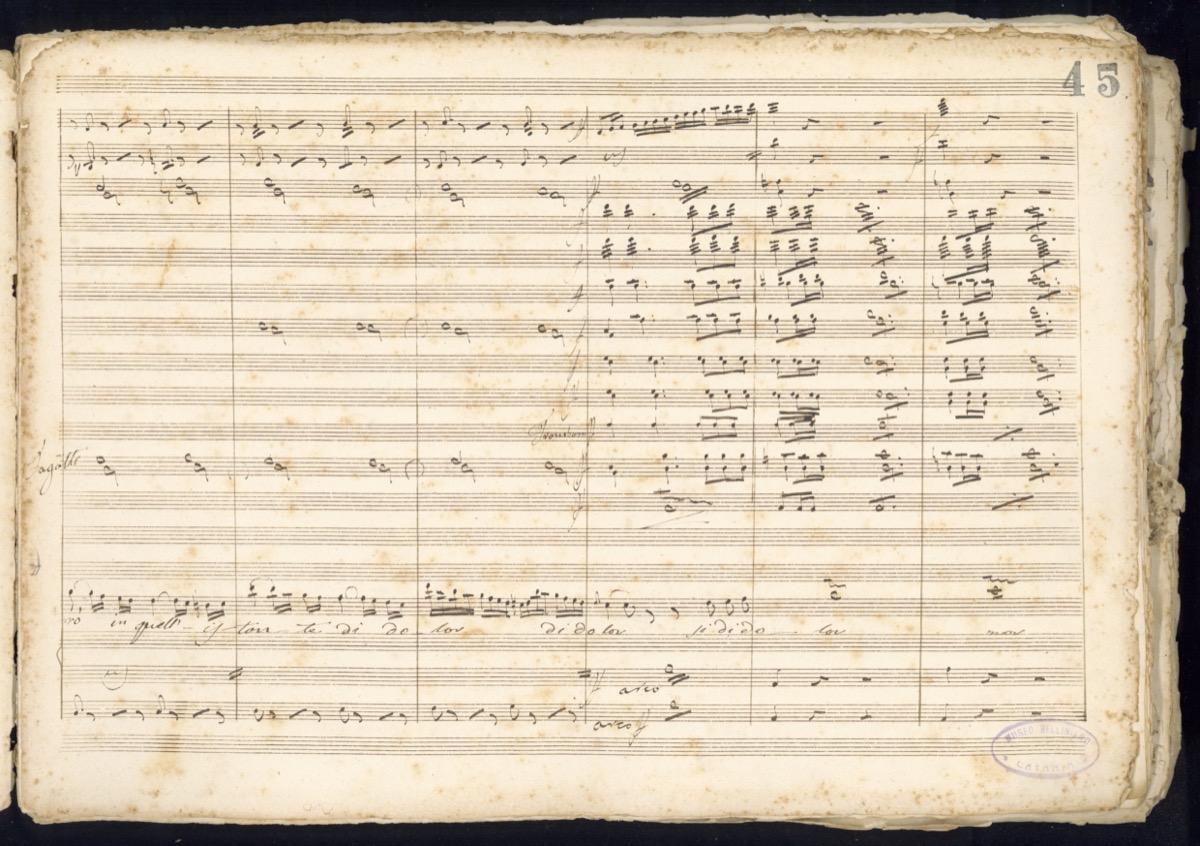 45
Fagotti
rò in quell is tan te di do lor di do lor si di do lor mor
arco
arco ff
MUSEO BELLINIANO
CATANIA